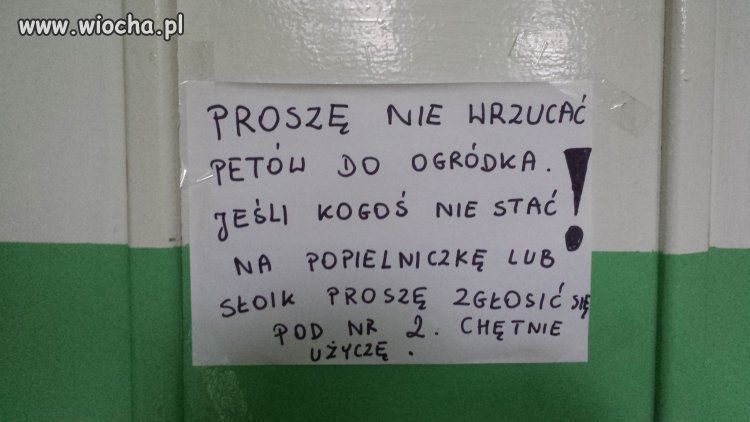 www.wiocha.pl
PROSZĘ NIE WRZUCAĆ
PETÓW DO OGRÓDKA.
JEŚLI KOGOŚ NIE STAĆ !
NA POPIELNICZKĘ LUB
SŁOIK PROSZĘ ZGŁOSIĆ SIĘ
POD NR 2. CHĘTNIE
UŻYCZĘ.